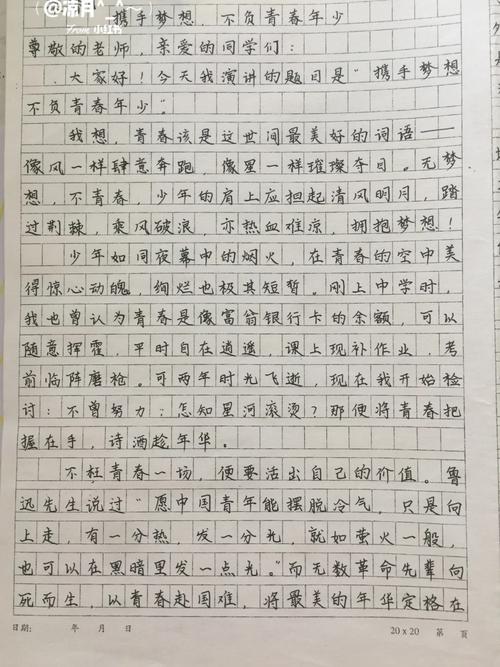 @凉月^_^
From 小红书
携手梦想，不负青春年少
尊敬的老师，亲爱的同学们：
大家好！今天我演讲的题目是“携手梦想
不负青春年少”。
我想，青春该是这世间最美好的词语——
像风一样肆意奔跑，像星一样璀璨夺目。无梦
想，不青春，少年的肩上应担起清风明月，踏
过荆棘，乘风破浪，亦热血难凉，拥抱梦想！
少年如同夜幕中的烟火，在青春的空中美
得惊心动魄，绚烂也极其短暂。刚上中学时，
我也曾认为青春是像富翁银行卡的余额，可以
随意挥霍，平时自在逍遥，课上现补作业，考
前临阵磨枪。可两年时光飞逝，现在我开始检
讨：不曾努力；怎知星河滚烫？那便将青春把
握在手，诗酒趁年华。
不枉青春一场，便要活出自己的价值。鲁
迅先生说过“愿中国青年能摆脱冷气，只是向
上走，有一分热，发一分光，就如萤火一般，
也可以在黑暗里发一点光。”而无数革命先辈向
死而生，以青春赴国难，将最美的年华定格在
日期： 年 月 日 20×20 第 页